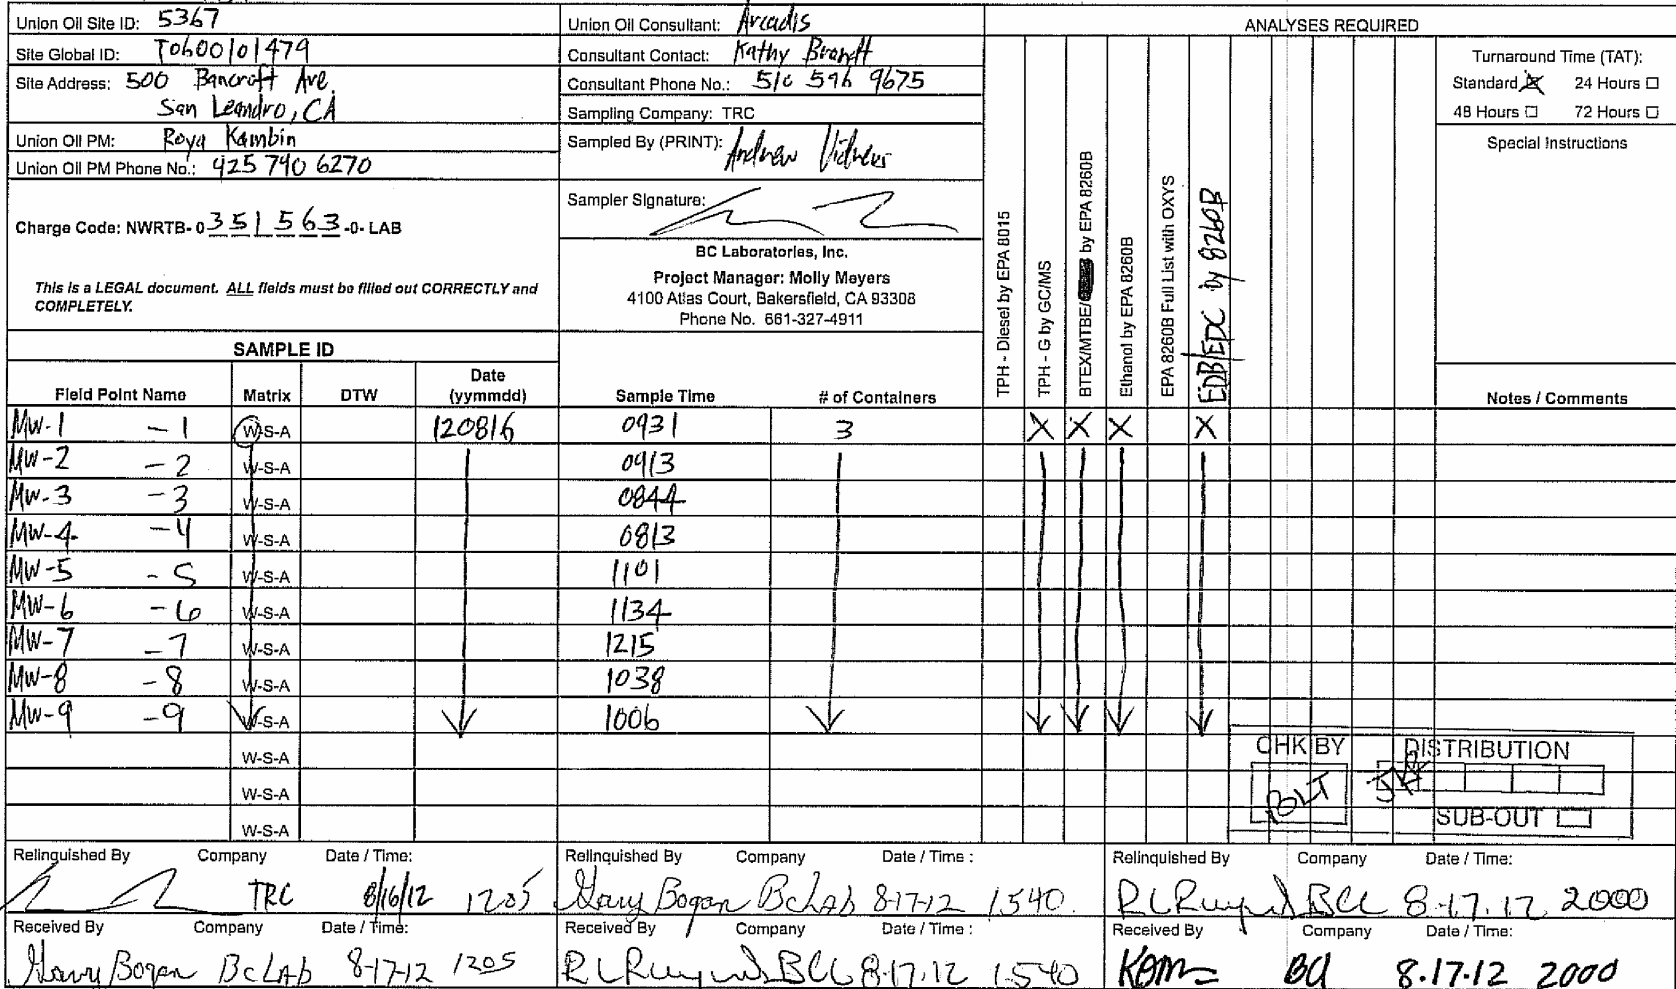 Union Oil Site ID: 5367
Site Global ID: T0600101479
Site Address: 500 Bancroft Ave.
San Leandro, CA
Union Oil PM: Roya Kambin
Union Oil PM Phone No.: 425 790 6270
Charge Code: NWRTB-0 3 5 1 5 6 3 -0- LAB
This is a LEGAL document. ALL fields must be filled out CORRECTLY and
COMPLETELY.
Union Oil Consultant: Arcadis
Consultant Contact: Kathy Brandt
Consultant Phone No.: 510 596 9675
Sampling Company: TRC
Sampled By (PRINT): Andrew Vidners
Sampler Signature:
BC Laboratories, Inc.
Project Manager: Molly Meyers
4100 Atlas Court, Bakersfield, CA 93308
Phone No. 661-327-4911
ANALYSES REQUIRED
TPH - Diesel by EPA 8015
TPH - G by GC/MS
BTEX/MTBE/ by EPA 8260B
Ethanol by EPA 8260B
EPA 8260B Full List with OXYS
EDB/EDC by 8260B
Turnaround Time (TAT):
Standard ☒ 24 Hours ☐
48 Hours ☐ 72 Hours ☐
Special Instructions
SAMPLE ID
Field Point Name Matrix DTW Date (yymmdd) Sample Time # of Containers Notes / Comments
MW-1 -1 W-S-A 120816 0931 3 X X X X
MW-2 -2 W-S-A 0913
MW-3 -3 W-S-A 0844
MW-4 -4 W-S-A 0813
MW-5 -5 W-S-A 1101
MW-6 -6 W-S-A 1134
MW-7 -7 W-S-A 1215
MW-8 -8 W-S-A 1038
MW-9 -9 W-S-A 1006
W-S-A
W-S-A
W-S-A
CHK BY DISTRIBUTION
BLT
SUB-OUT
Relinquished By Company Date / Time:
TRC 8/16/12 1205
Received By Company Date / Time:
Gary Bogan BCLAB 8-17-12 1205
Relinquished By Company Date / Time :
Gary Bogan BCLAB 8-17-12 1540
Received By Company Date / Time :
BCL 8-17-12 1540
Relinquished By Company Date / Time:
BCL 8-17-12 2000
Received By Company Date / Time:
BCL 8-17-12 2000